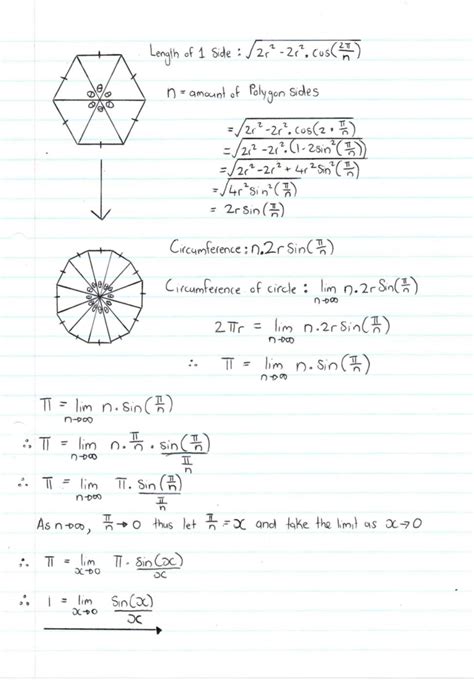 Length of 1 side : √(2r² - 2r². cos(2π/n))
n = amount of Polygon sides
= √(2r² - 2r². cos(2 · π/n))
= √(2r² - 2r². (1 - 2sin²(π/n)))
= √(2r² - 2r² + 4r² sin²(π/n))
= √(4r² sin²(π/n))
= 2r sin(π/n)
Circumference : n. 2r sin(π/n)
Circumference of circle : lim n→∞ n. 2r Sin(π/n)
2πr = lim n→∞ n. 2r sin(π/n)
∴ π = lim n→∞ n. sin(π/n)
π = lim n→∞ n. sin(π/n)
∴ π = lim n→∞ n. π/n . sin(π/n) / (π/n)
∴ π = lim n→∞ π. sin(π/n) / (π/n)
As n→∞, π/n → 0 thus let π/n = x and take the limit as x→0
∴ π = lim x→0 π. sin(x)/x
∴ 1 = lim x→0 sin(x)/x